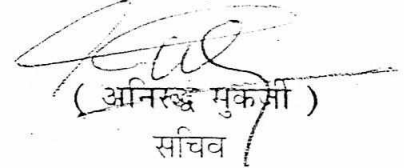 ( अनिरूद्ध मुकर्जी )
सचिव